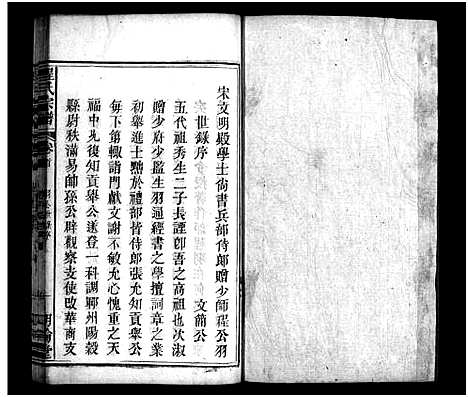 宋文明殿學士尙書兵部侍郞贈少師程公羽
世錄序
文簡公
五代祖秀生二子長諲卽吾之高祖也次淑
贈少府少監生羽通經書之學擅詞章之業
初舉進士黜於禮部皆侍郞張允知貢舉公
每下第輙諸門獻文謝不敏允心愧重之天
福中允復知貢舉公遂登一科調聊州陽穀
縣尉秩滿易帥孫公辟觀察支使改華商支
程氏宗譜
卷首
明倫堂